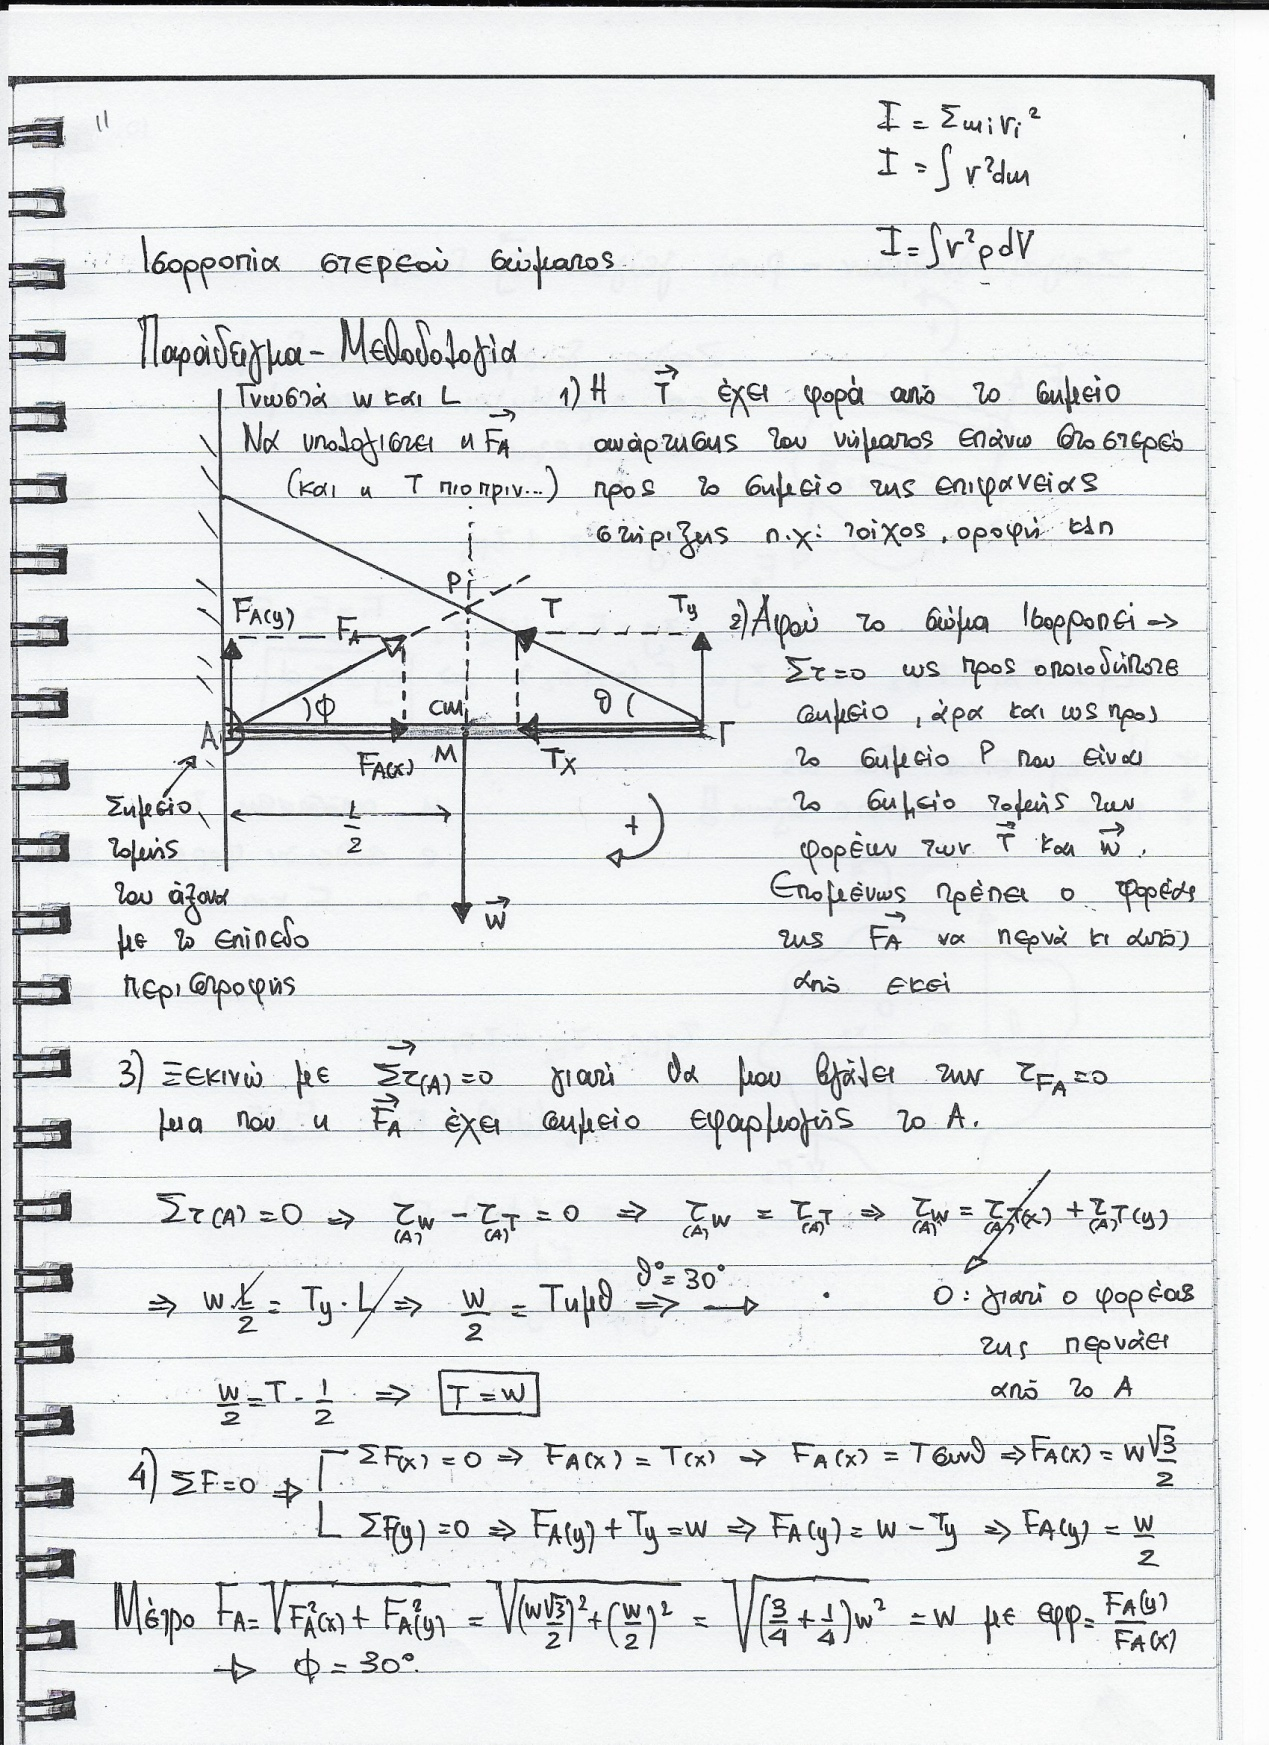 11
I = Σmᵢrᵢ²
I = ∫r²dm
I = ∫r²ρdV
Ισορροπία στερεού σώματος
Παράδειγμα - Μεθοδολογία
Γνωστά w και L
Να υπολογιστεί η F⃗A
(και η T πιο πριν...)
1) Η T⃗ έχει φορά από το σημείο
ανάρτησης του νήματος επάνω στο στερεό
προς το σημείο της επιφάνειας
στήριξης π.χ: τοίχος, οροφή κλπ
P
FA(y) FA T Ty
φ cm θ
A Γ
FA(x) M Tx
L/2 +
w⃗
Σημείο
τομής
του άξονα
με το επίπεδο
περιστροφής
2) Αφού το σώμα Ισορροπεί →
Στ=0 ως προς οποιοδήποτε
σημείο, άρα και ως προς
το σημείο P που είναι
το σημείο τομής των
φορέων των T⃗ και w⃗.
Επομένως πρέπει ο φορέας
της F⃗A να περνά κι αυτός
από εκεί
3) Ξεκινώ με Στ⃗(A)=0 γιατί θα μου βγάλει την τFA=0
μια που η F⃗A έχει σημείο εφαρμογής το A.
Στ(A)=0 ⇒ τw(A) - τT(A) = 0 ⇒ τw(A) = τT(A) ⇒ τw(A) = τT(x)(A) + τT(y)(A)
⇒ w·L/2 = Ty·L ⇒ w/2 = Tημθ θ°=30° ⇒ →
0: γιατί ο φορέας
της περνάει
από το A
w/2 = T·1/2 ⇒ T=w
4) ΣF=0 ⇒ ΣF(x)=0 ⇒ FA(x) = T(x) ⇒ FA(x) = Tσυνθ ⇒ FA(x) = w√3/2
ΣF(y)=0 ⇒ FA(y) + Ty = w ⇒ FA(y) = w - Ty ⇒ FA(y) = w/2
Μέτρο FA = √(FA²(x) + FA²(y)) = √((w√3/2)² + (w/2)²) = √((3/4 + 1/4)w²) = w με εφφ = FA(y)/FA(x)
→ φ = 30°.